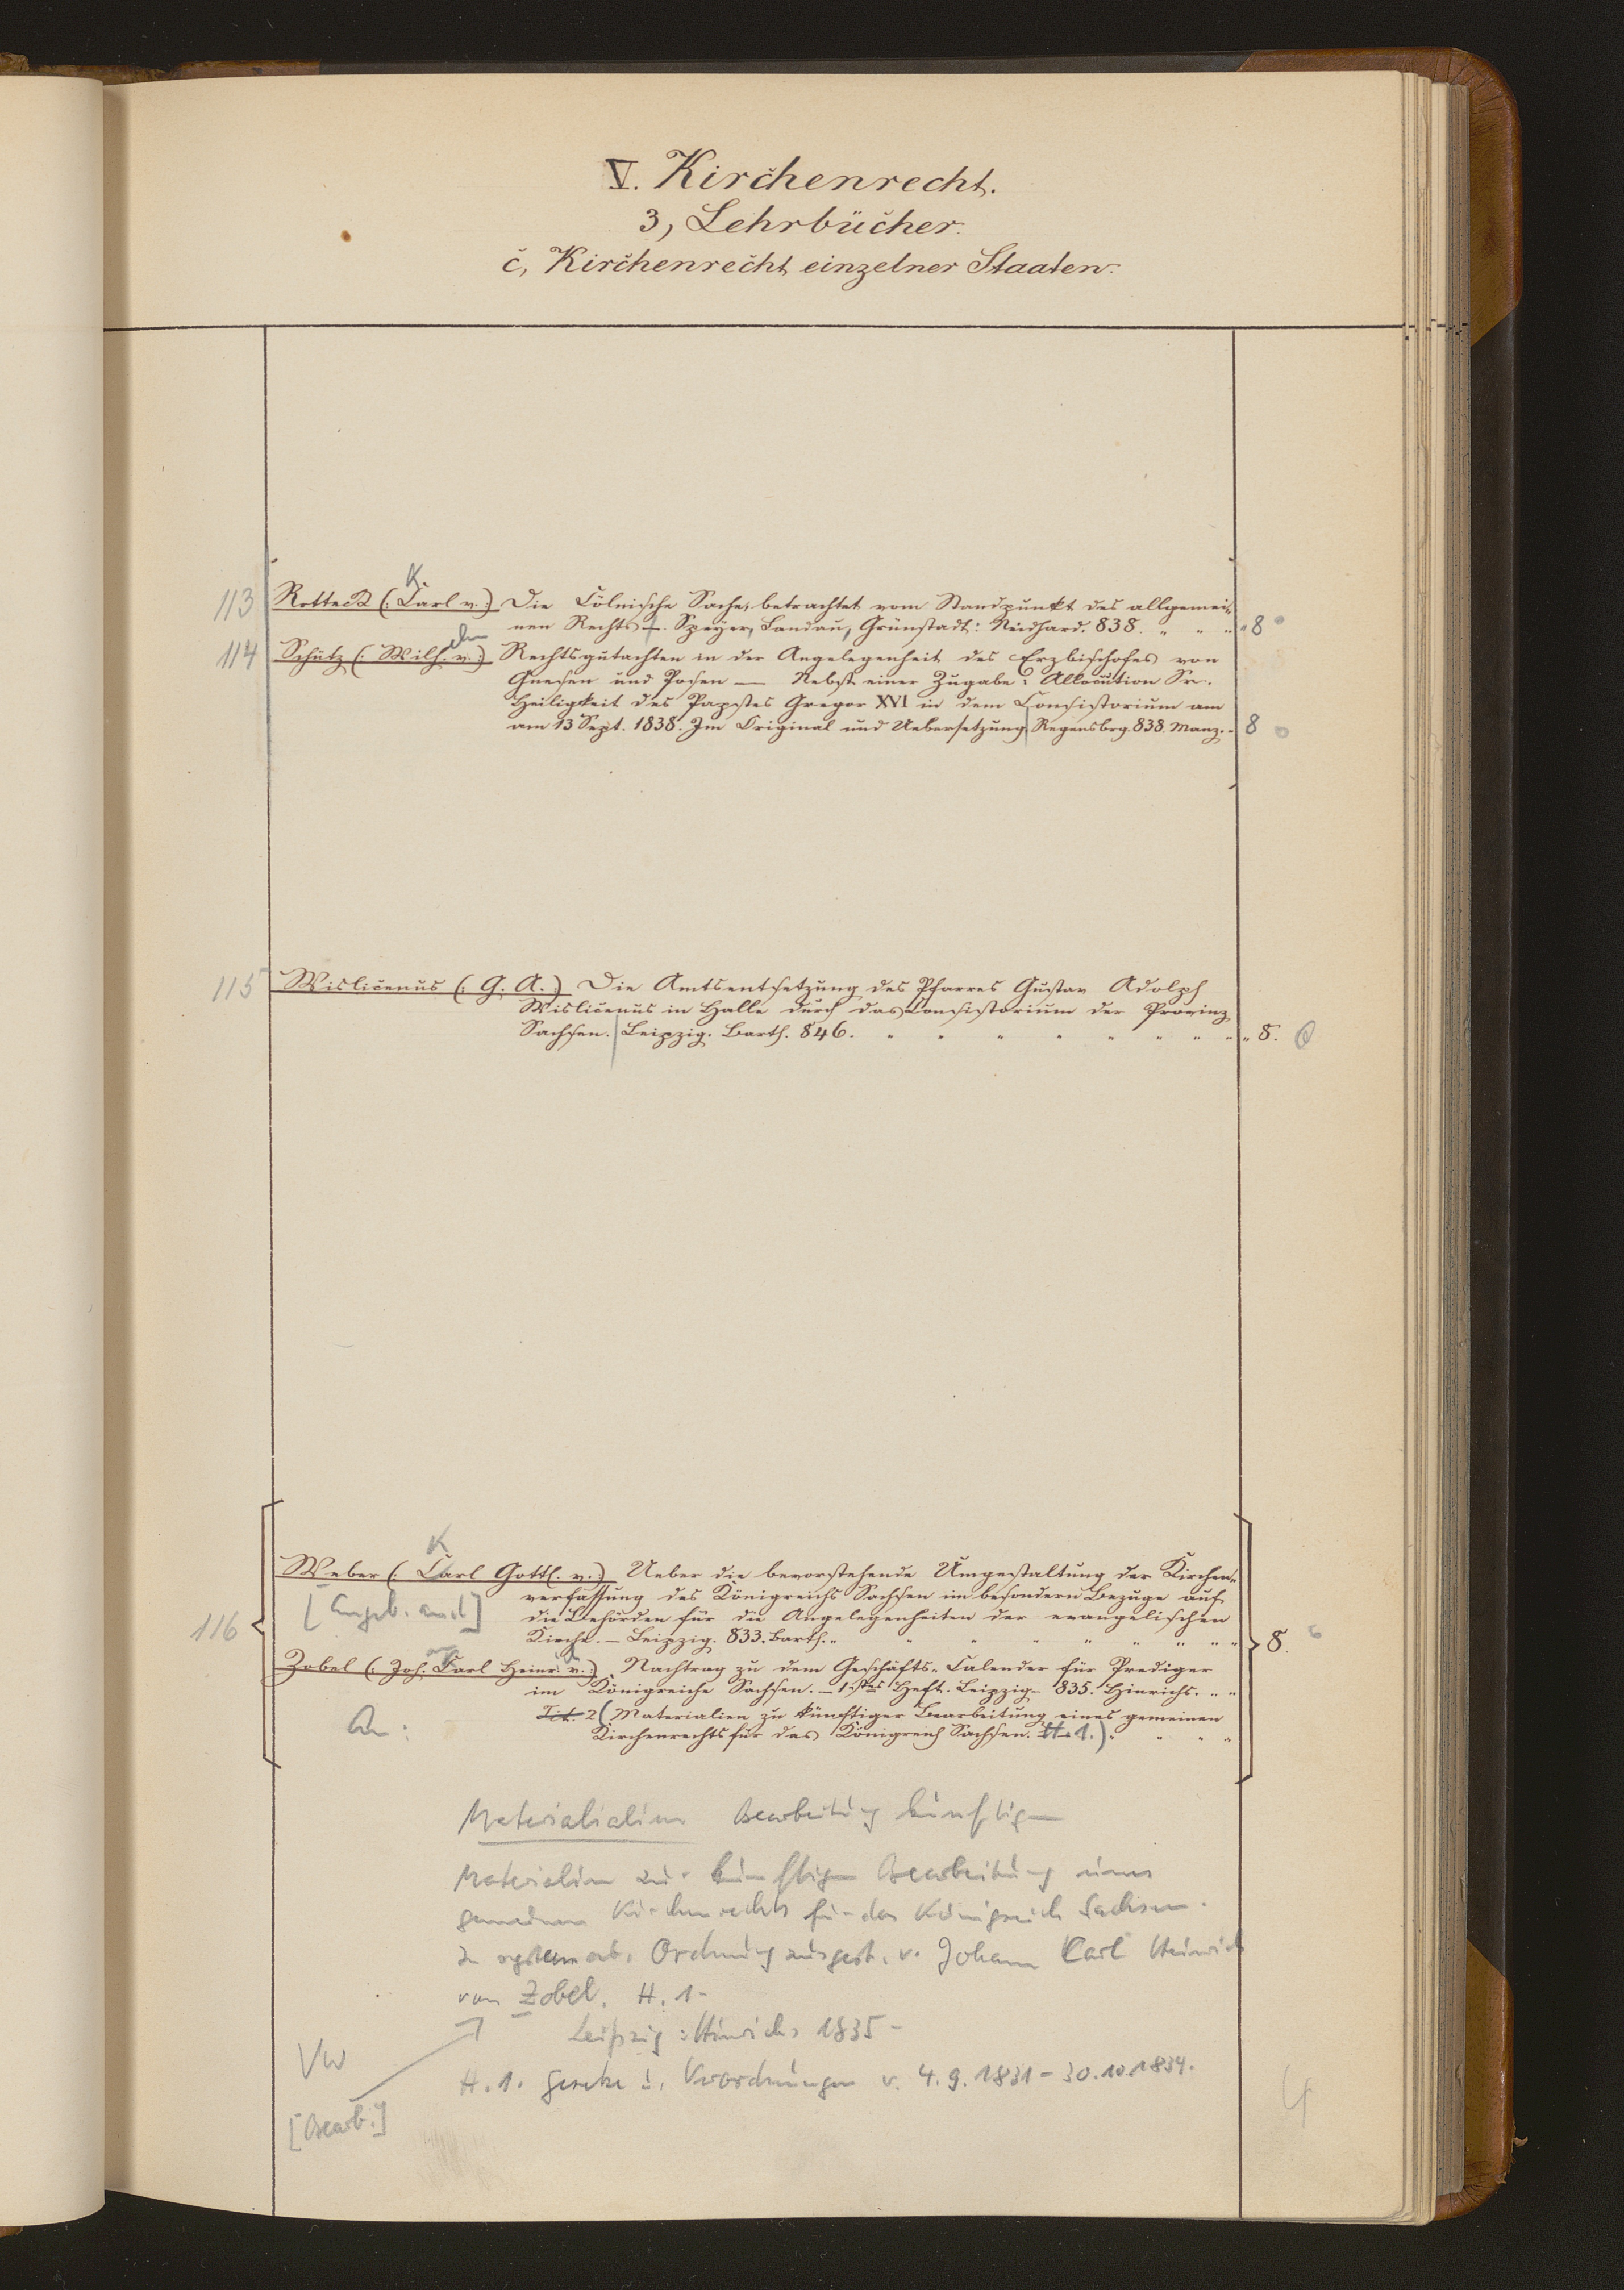 V. Kirchenrecht.
3, Lehrbücher.
c, Kirchenrecht einzelner Staaten.
K
113 Rotteck (: Carl v. :) Die Cölnische Sache, betrachtet vom Standpunkt des allgemei-
nen Rechts —. Speyer, Landau, Grünstadt: Neidhard. 838. „ „ „ „ 8
elm
114 Schütz (: Wilh. v. :) Rechtsgutachten in der Angelegenheit des Erzbischofes von
Gnesen und Posen — Nebst einer Zugabe: Allocution Sr.
Heiligkeit des Papstes Gregor XVI in dem Consistorium am
am 13 Sept. 1838. Im Original und Uebersetzung. Regensbrg. 838. Manz. „ 8
115 Wislicenus (: G. A. :) Die Amtsentsetzung des Pfarres Gustav Adolph
Wislicenus in Halle durch das Consistorium der Provinz
Sachsen. Leipzig. Barth. 846. „ „ „ „ „ „ „ „ „ 8.
K
Weber (: Carl Gottl. v. :) Ueber die bevorstehende Umgestaltung der Kirchen-
verfassung des Königreichs Sachsen im besondern Bezuge auf
[Angeb. and]
die Behörden für die Angelegenheiten der evangelischen
116
Kirche. — Leipzig. 833. Barth. „ „ „ „ „ „ „ „ „ 8.
Zobel (: Joh. Carl Heinr. v. :) Nachtrag zu dem Geschäfts-Calender für Prediger
im Königreiche Sachsen. — 1stes Heft. Leipzig — 835. Hinrichs. „ „
Tit. 2 (Materialien zu künftiger Bearbeitung eines gemeinen
An:
Kirchenrechts für das Königreich Sachsen. H. 1.) „ „ „ „
Materialialien Bearbeitung künftigen
Materialien zur künftigen Bearbeitung eines
gemeinen Kirchenrechts für das Königreich Sachsen.
In systemat. Ordnung ausgest. v. Johann Carl Heinrich
von Zobel. H. 1-
Leipzig: Hinrichs 1835-
VW
H. 1. Gesetze u. Verordnungen v. 4.9.1831 - 30.10.1834.
[Bearb.]